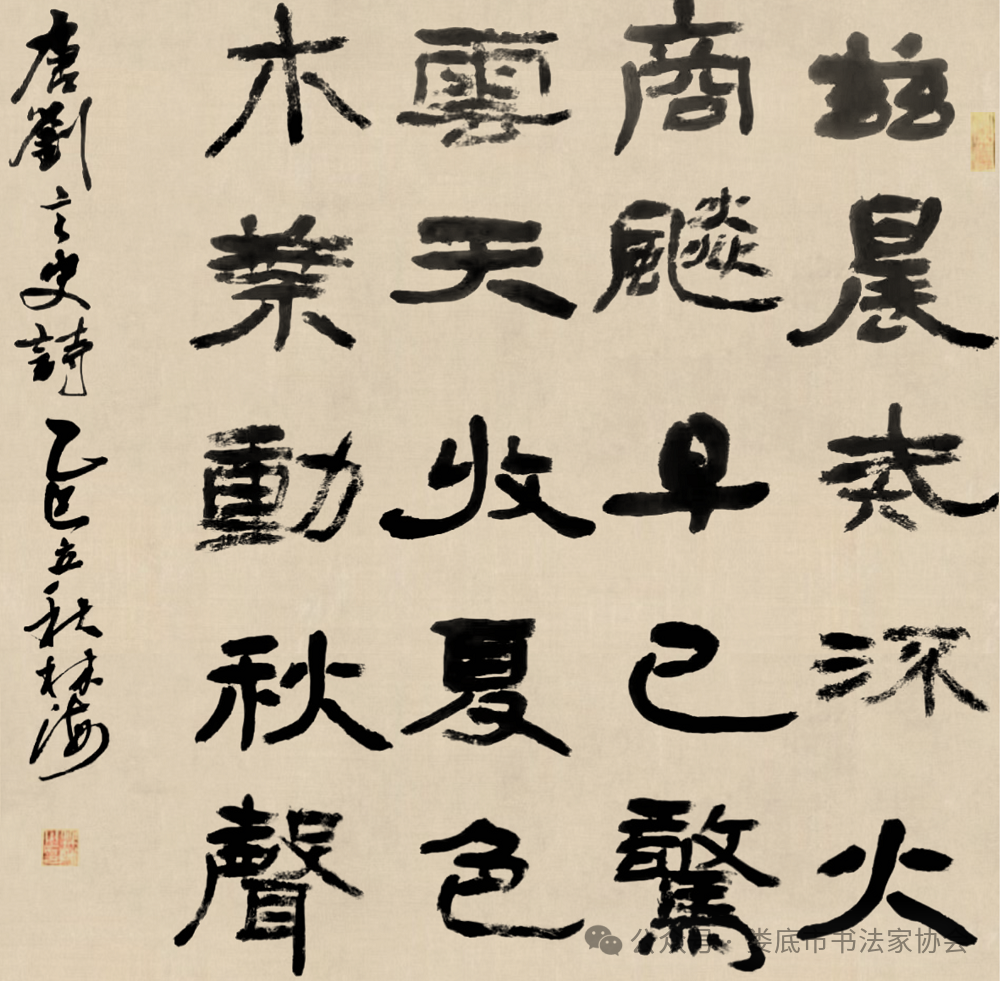 茲晨戒流火
商飈早已驚
雲天收夏色
木葉動秋聲
唐劉言史詩乙巳立秋林海
公众号·娄底市书法家协会